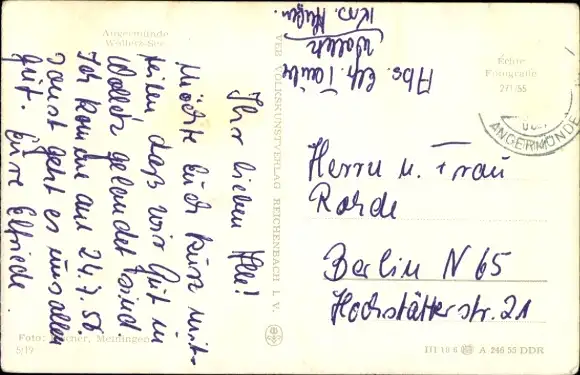 Angermünde
Wolletz-See
Ihr lieben Alle!
Möchte Euch kurz mit-
teilen daß wir gut in
Wolletz gelandet sind.
Ich komme am 24.7.56.
Sonst geht es uns allen
gut. Eure Elfriede
Foto: Meiningen
5/19
VEB VOLKSKUNSTVERLAG REICHENBACH I. V.
Abs. Elfr.
Wolletz
Krs.
Echte
Fotografie
271/55
ANGERMÜNDE
Herrn u. Frau
Rohde
Berlin N 65
Hochstätterstr. 21
III 18 6 A 246 55 DDR